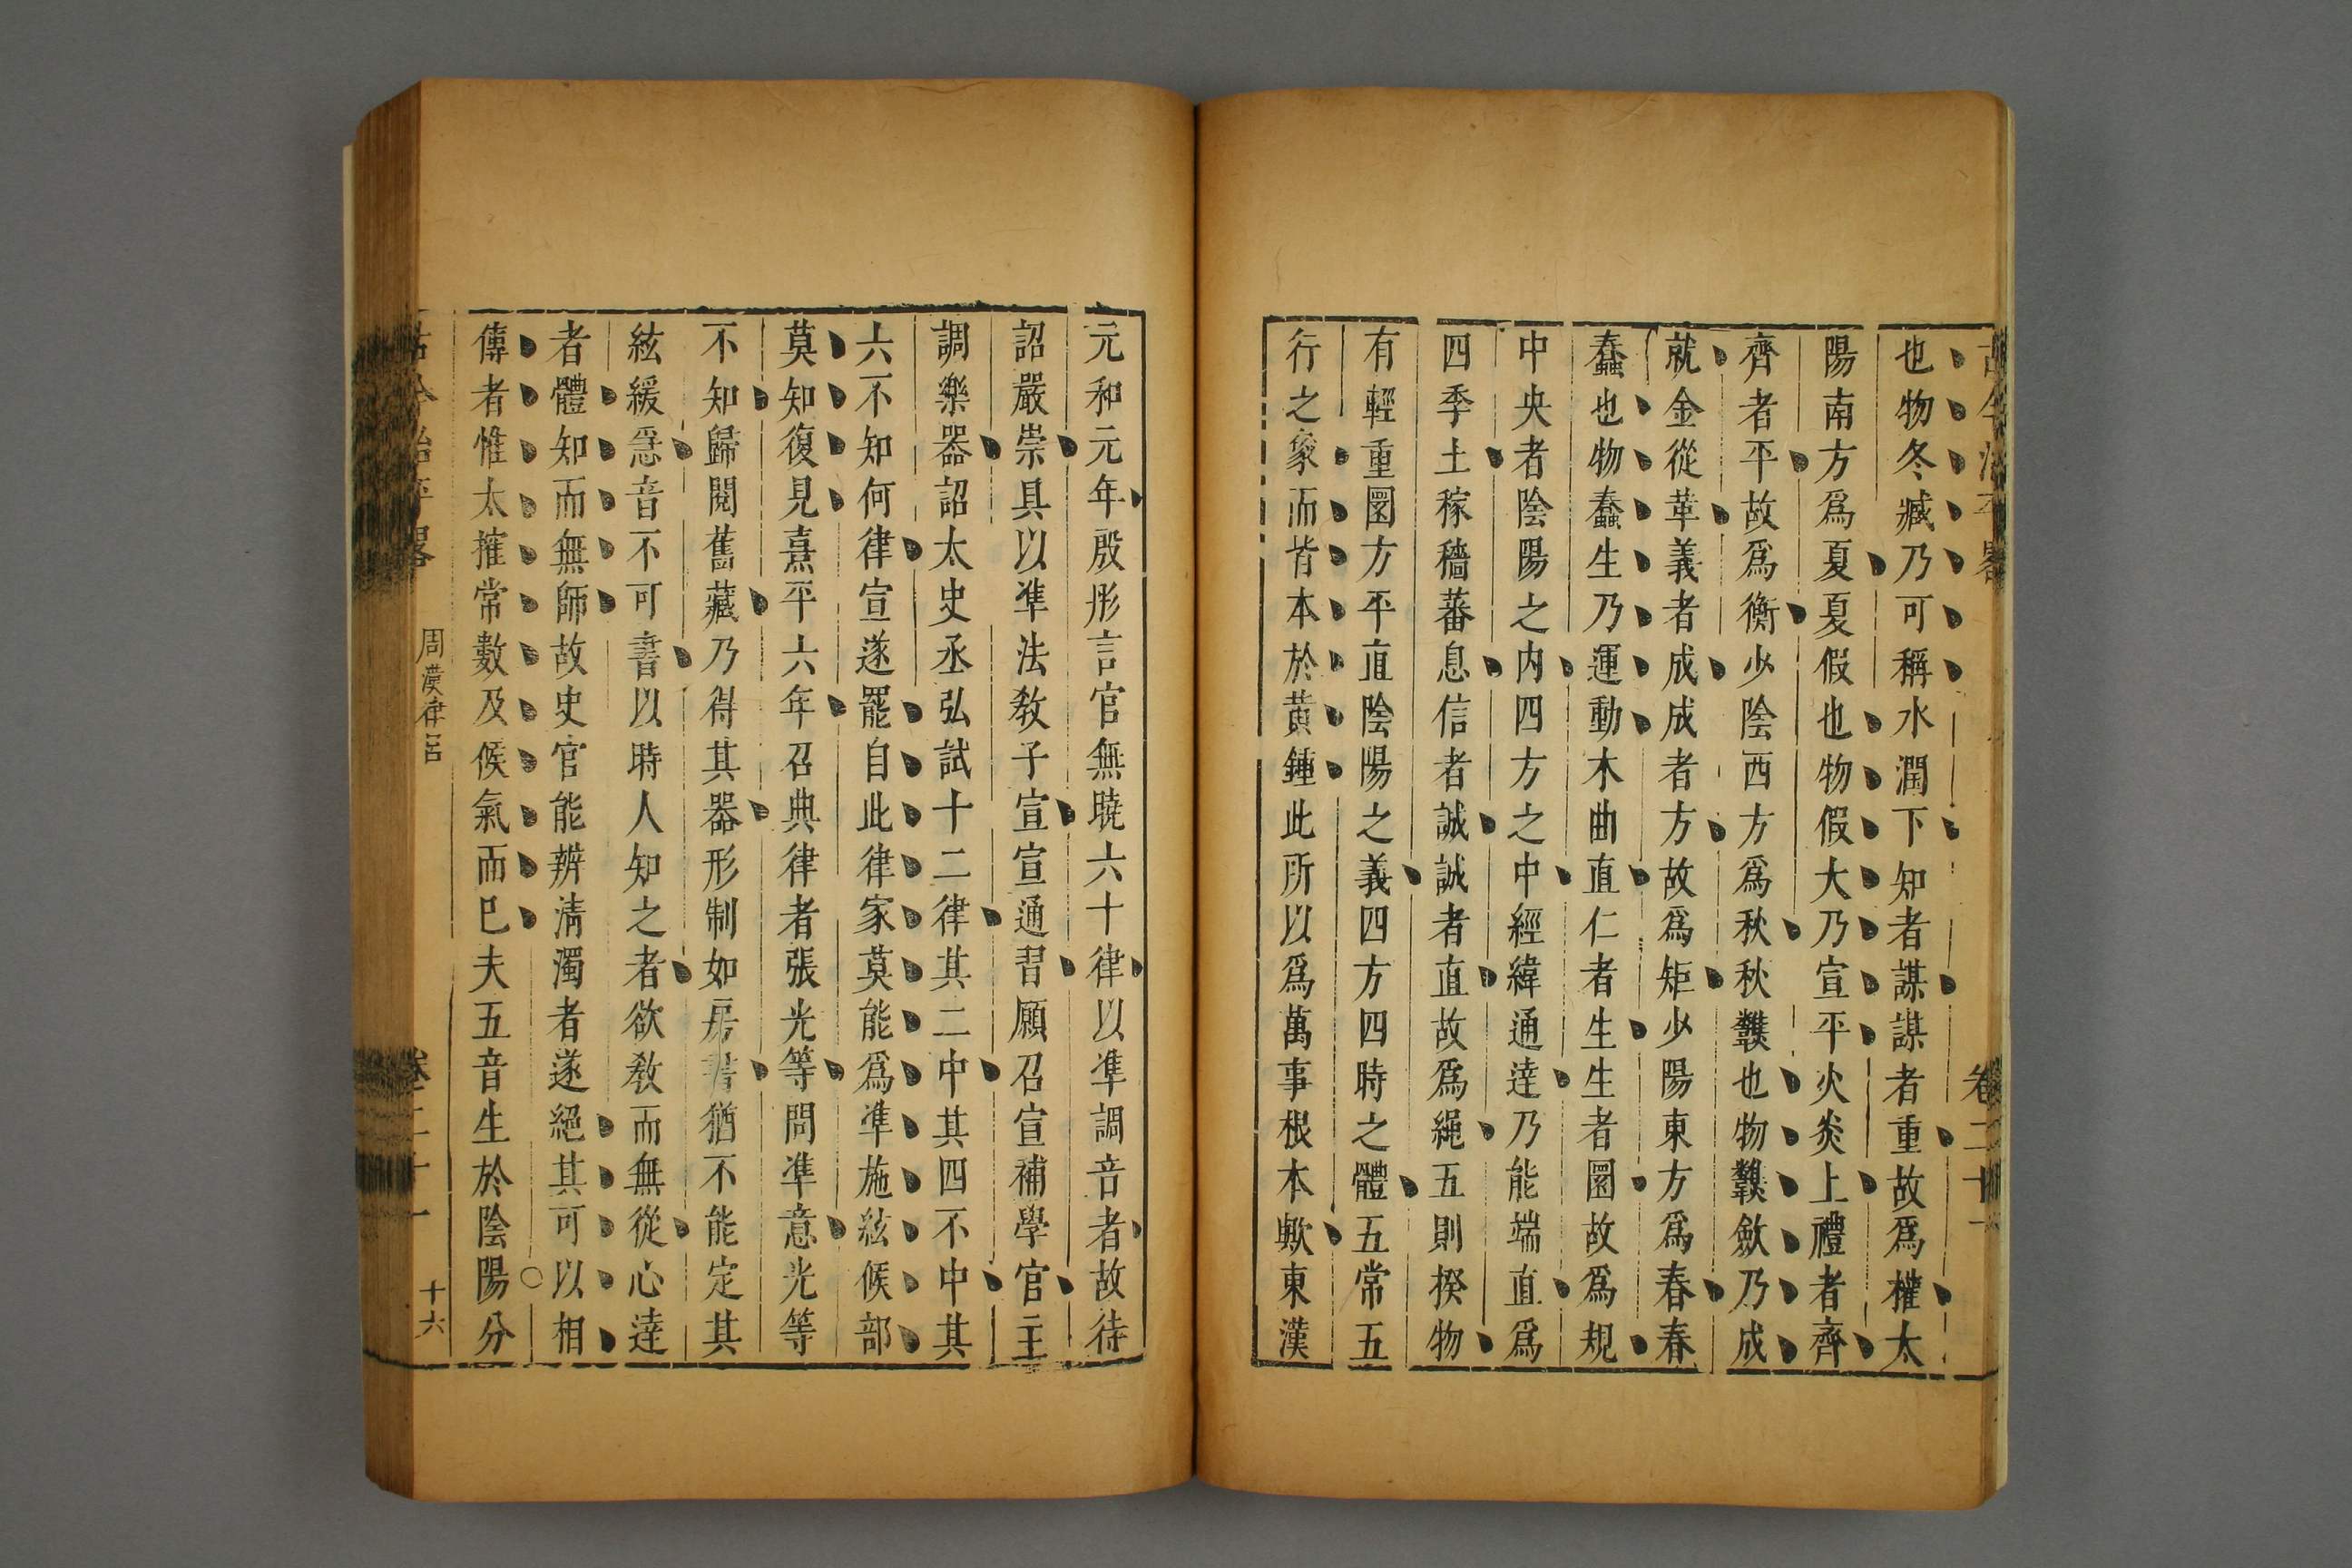 也物冬臧乃可稱水潤下知者謀謀者重故爲權太
陽南方爲夏夏假也物假大乃宣平火炎上禮者齊
齊者平故爲衡少陰西方爲秋秋䊶也物䊶斂乃成
就金從革義者成成者方故爲矩少陽東方爲春春
蠢也物蠢生乃運動木曲直仁者生生者圜故爲規
中央者陰陽之内四方之中經緯通逹乃能端直爲
四季土稼穡蕃息信者誠誠者直故爲繩五則揆物
有輕重圜方平直陰陽之義四方四時之體五常五
行之象而皆本於黄鍾此所以爲萬事根本歟東漢
卷二十一
元和元年殷肜言官無曉六十律以凖調音者故待
詔嚴崇具以凖法敎子宣宣通習願召宣補學官主
調樂器詔太史丞弘試十二律其二中其四不中其
六不知何律宣遂罷自此律家莫能爲凖施絃候部
莫知復見熹平六年召典律者張光等問凖意光等
不知歸閱舊藏乃得其器形制如房書猶不能定其
絃緩急音不可書以時人知之者欲敎而無從心逹
者體知而無師故史官能辨清濁者遂絕其可以相
傳者惟太㩁常數及候氣而巳夫五音生於陰陽分
周漢律呂
十六